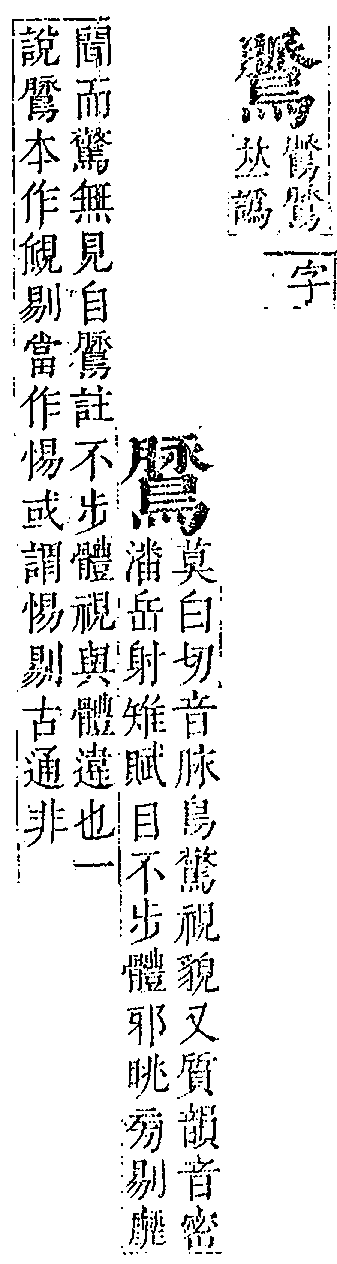 𠀤譌
字
莫白切音脉鳥驚視貌又質韻音密
潘岳射雉賦目不步體邪眺旁剔靡
聞而驚無見自註不步體視與體違也一
說本作覛剔當作惕或謂惕剔古通非